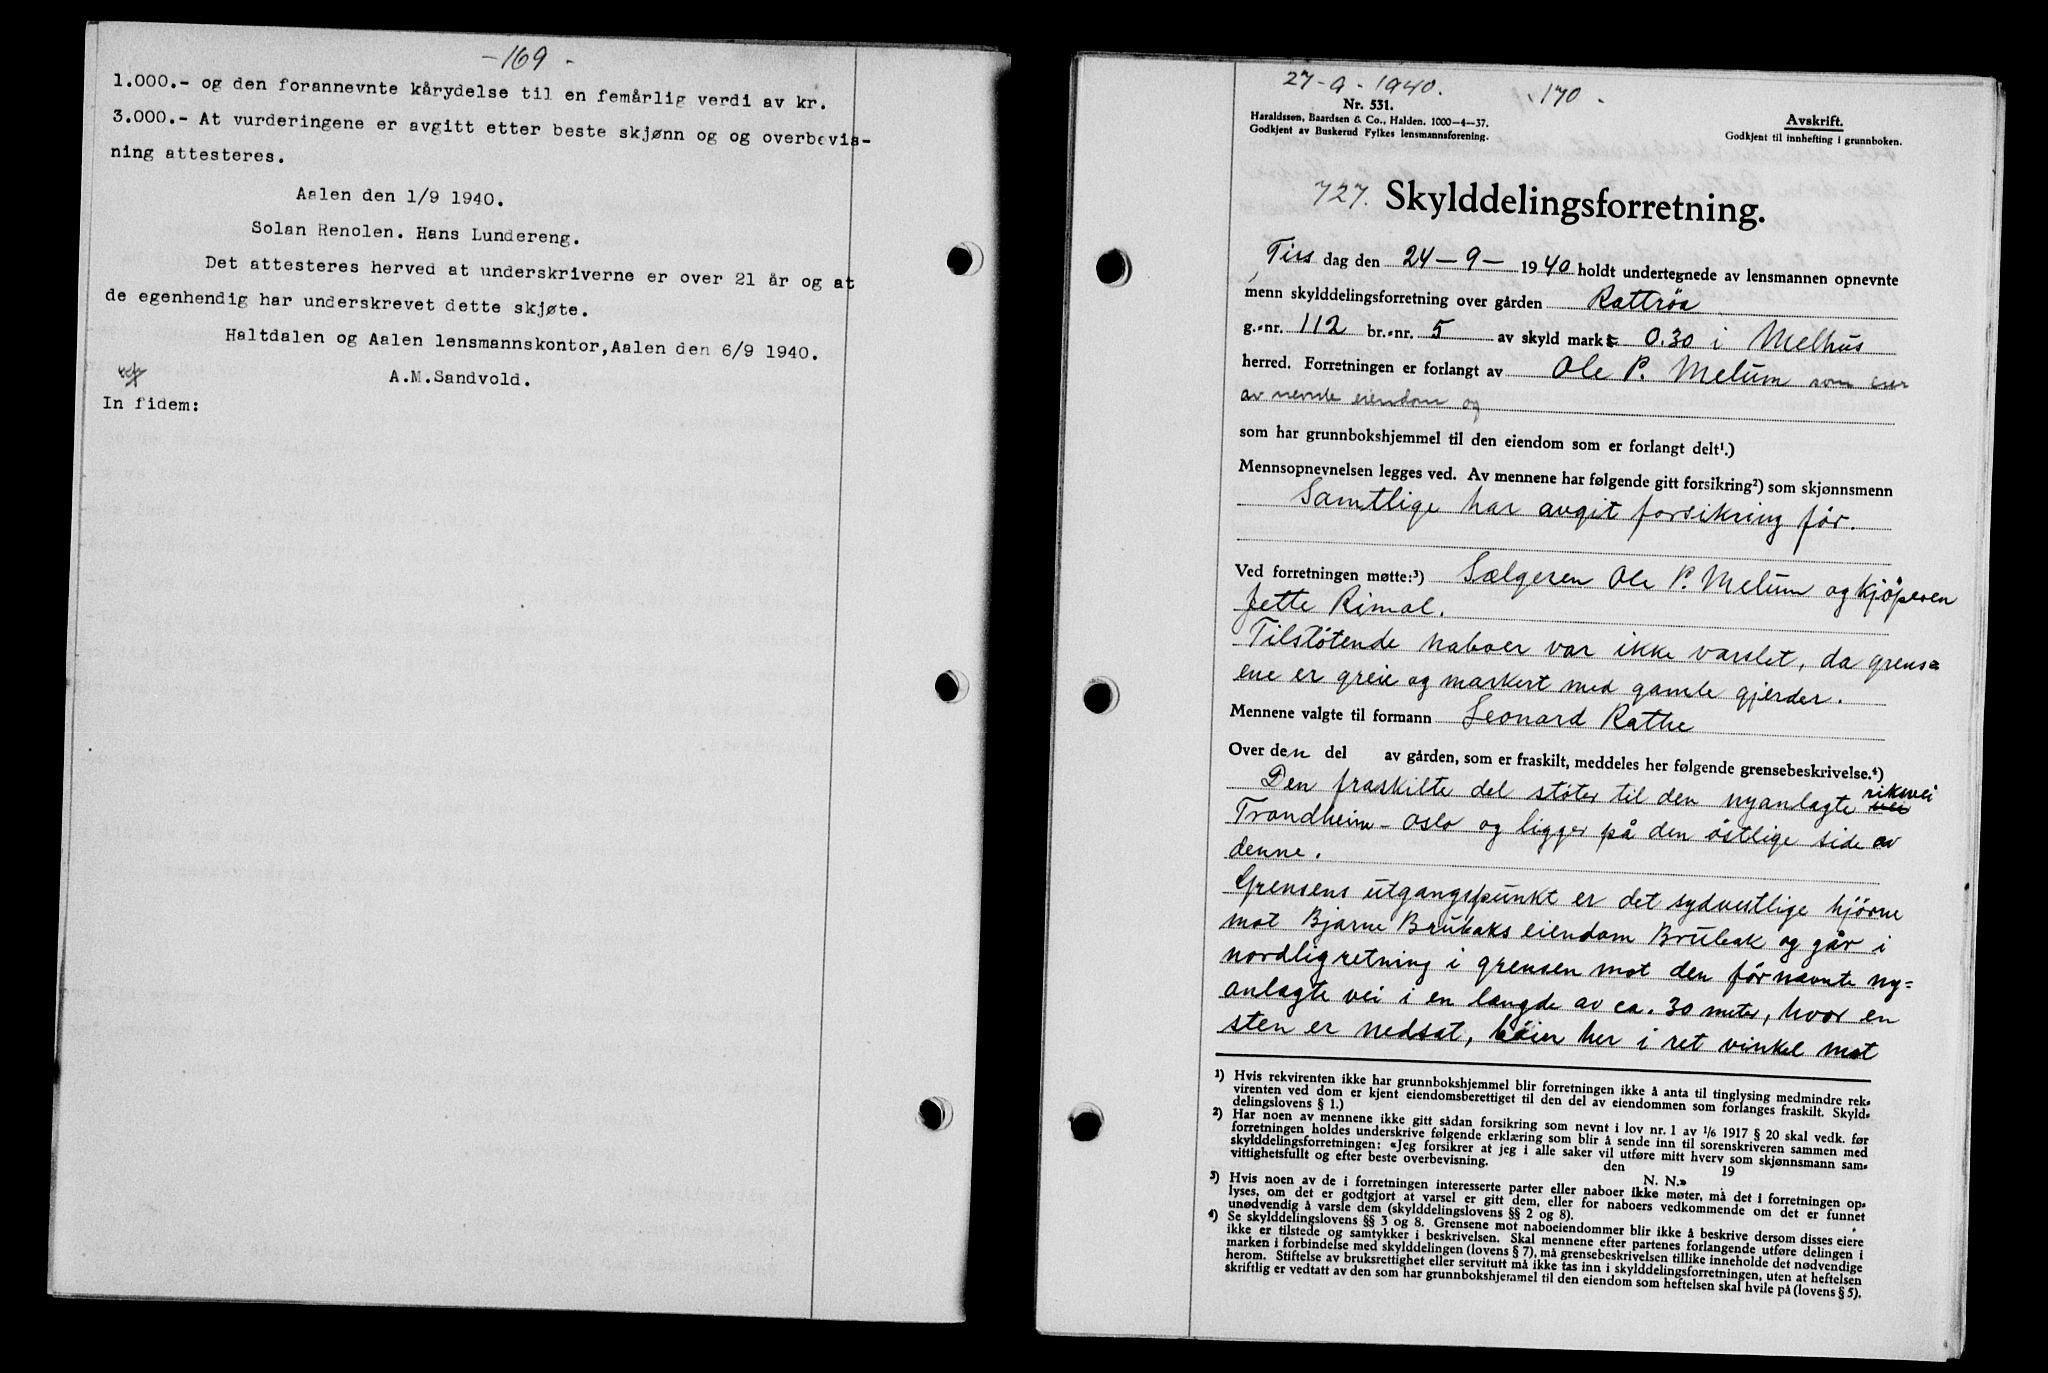 - 169 -
1.000.- og den forannevnte kårydelse til en femårlig verdi av kr.
3.000.- At vurderingene er avgitt etter beste skjønn og og overbevis-
ning attesteres.
Aalen den 1/9 1940.
Solan Renolen. Hans Lundereng.
Det attesteres herved at underskriverne er over 21 år og at
de egenhendig har underskrevet dette skjøte.
Haltdalen og Aalen lensmannskontor, Aalen den 6/9 1940.
A.M.Sandvold.
In fidem:
27-9-1940.
- 170 -
Nr. 531.
Haraldssen, Baardsen & Co., Halden. 1000-4-37.
Godkjent av Buskerud Fylkes lensmannsforening.
Avskrift.
Godkjent til innhefting i grunnboken.
727. Skylddelingsforretning.
Tirsdag den 24-9-1940 holdt undertegnede av lensmannen opnevnte
menn skylddelingsforretning over gården Rattrøa
g.-nr. 112 br.-nr. 5 av skyld mark 0.30 i Melhus
herred. Forretningen er forlangt av Ole P. Melum som eier
av nevnte eiendom og
som har grunnbokshjemmel til den eiendom som er forlangt delt¹.)
Mennsopnevnelsen legges ved. Av mennene har følgende gitt forsikring²) som skjønnsmenn
Samtlige har avgit forsikring før.
Ved forretningen møtte:³) Sælgeren Ole P. Melum og kjøperen
Jette Rimol.
Tilstøtende naboer var ikke varslet, da grens=
ene er greie og markert med gamle gjerder.
Mennene valgte til formann Leonard Rathe
Over den del av gården, som er fraskilt, meddeles her følgende grensebeskrivelse.⁴)
Den fraskilte del støter til den nyanlagte riksvei
Trondheim - Oslo og ligger på den østlige side av
denne.
Grensens utgangspunkt er det sydvestlige hjørne
mot Bjarne Brubaks eiendom Brubak og går i
nordlig retning i grensen mot den førnævnte ny=
anlagte vei i en længde av ca. 30 meter, hvor en
sten er nedsat, bøier her i ret vinkel mot
¹) Hvis rekvirenten ikke har grunnbokshjemmel blir forretningen ikke å anta til tinglysing medmindre rek-
virenten ved dom er kjent eiendomsberettiget til den del av eiendommen som forlanges fraskilt. Skyld-
delingslovens § 1.)
²) Har noen av mennene ikke gitt sådan forsikring som nevnt i lov nr. 1 av 1/6 1917 § 20 skal vedk. før
forretningen holdes underskrive følgende erklæring som blir å sende inn til sorenskriveren sammen med
skylddelingsforretningen: «Jeg forsikrer at jeg i alle saker vil utføre mitt hverv som skjønnsmann sam-
vittighetsfullt og efter beste overbevisning.
den 19
N. N.»
³) Hvis noen av de i forretningen interesserte parter eller naboer ikke møter, må det i forretningen op-
lyses, om det er godtgjort at varsel er gitt dem, eller for naboers vedkommende om det er funnet
unødvendig å varsle dem (skylddelingslovens §§ 2 og 8).
⁴) Se skylddelingslovens §§ 3 og 8. Grensene mot naboeiendommer blir ikke å beskrive dersom disses eiere
ikke er tilstede og samtykker i beskrivelsen. Skal mennene efter partenes forlangende utføre delingen i
marken i forbindelse med skylddelingen (lovens § 7), må grensebeskrivelsen tillike inneholde det nødvendige
herom. Stiftelse av bruksrettighet eller servitutt må ikke tas inn i skylddelingsforretningen, uten at heftelsen
skriftlig er vedtatt av den som har grunnbokshjemmel til den eiendom som heftelsen skal hvile på (lovens § 5).